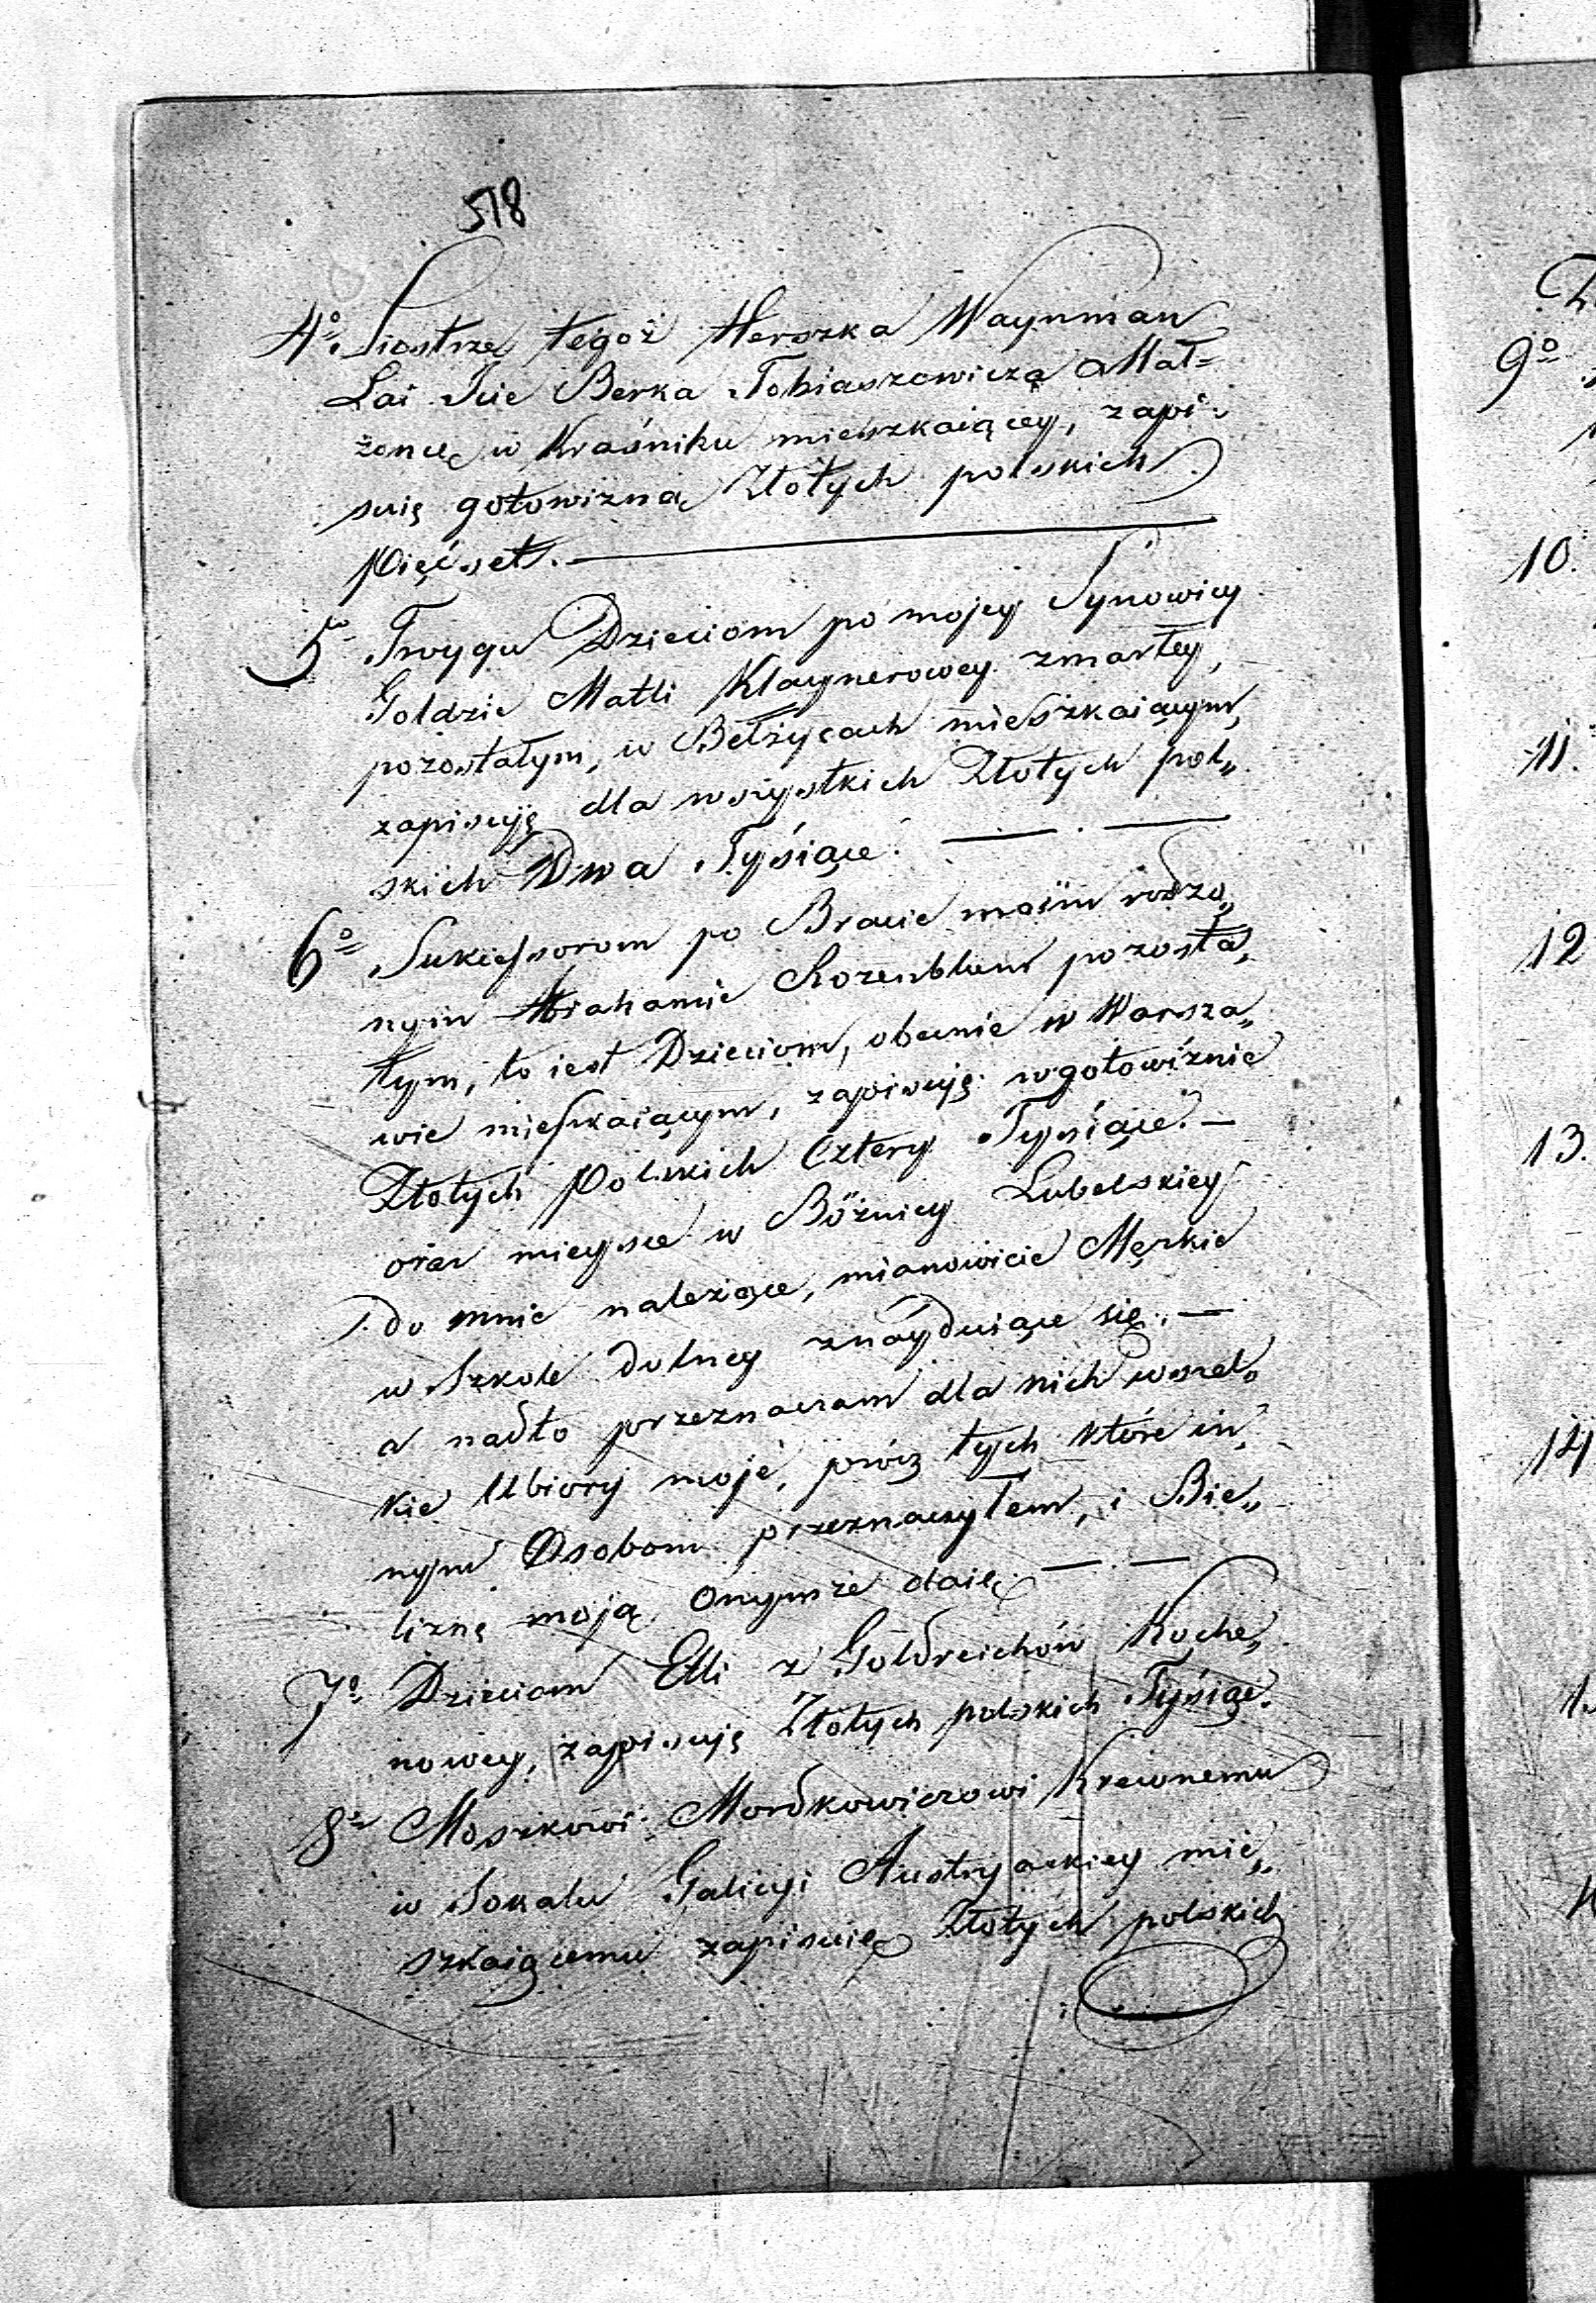 518
4o Siostrze tegoż Herszka Waynman
Lai Icie Berka Tobiaszowicza Mał=
żonce w Kraśniku mieszkaiącey, zapi-
suię gotowizną Złotych polskich
pięćset.
5to Troygu Dzieciom po mojey Synowicy
Goldzie Matli Klaynerowey zmarłey,
pozostałym, w Bełżycach mieszkaiącym,
zapisuję dla wszystkich Złotych pol„
skich Dwa Tysiące.
6o Sukcessorom po Bracie moim rodzo„
nym Abrahamie Rozenblum pozosta„
łym, to iest Dzieciom, obecnie w Warsza„
wie mieszkaiącym, zapisuję w gotowiznie
Złotych Polskich Cztery Tysiące. —
oraz mieysce w Bóżnicy Lubelskiey
do mnie należące, mianowicie Męzkie
w Szkole dolney znayduiące się. —
a nadto przeznaczam dla nich wszel„
kie Ubiory moje, prócz tych które in„
nym Osobom przeznaczyłem, i Bie„
liznę moją Onymże daię. — . —
7o Dzieciom Elli z Goldreichów Koche„
nowey, zapisuję Złotych polskich Tysiąc.
8o Moszkowi Mordkowiczowi Krewnemu
w Sokalu Galicyi Austryackiey mie„
szkaiącemu zapisuię Złotych polskich
9o
10.
11.
12
13.
14